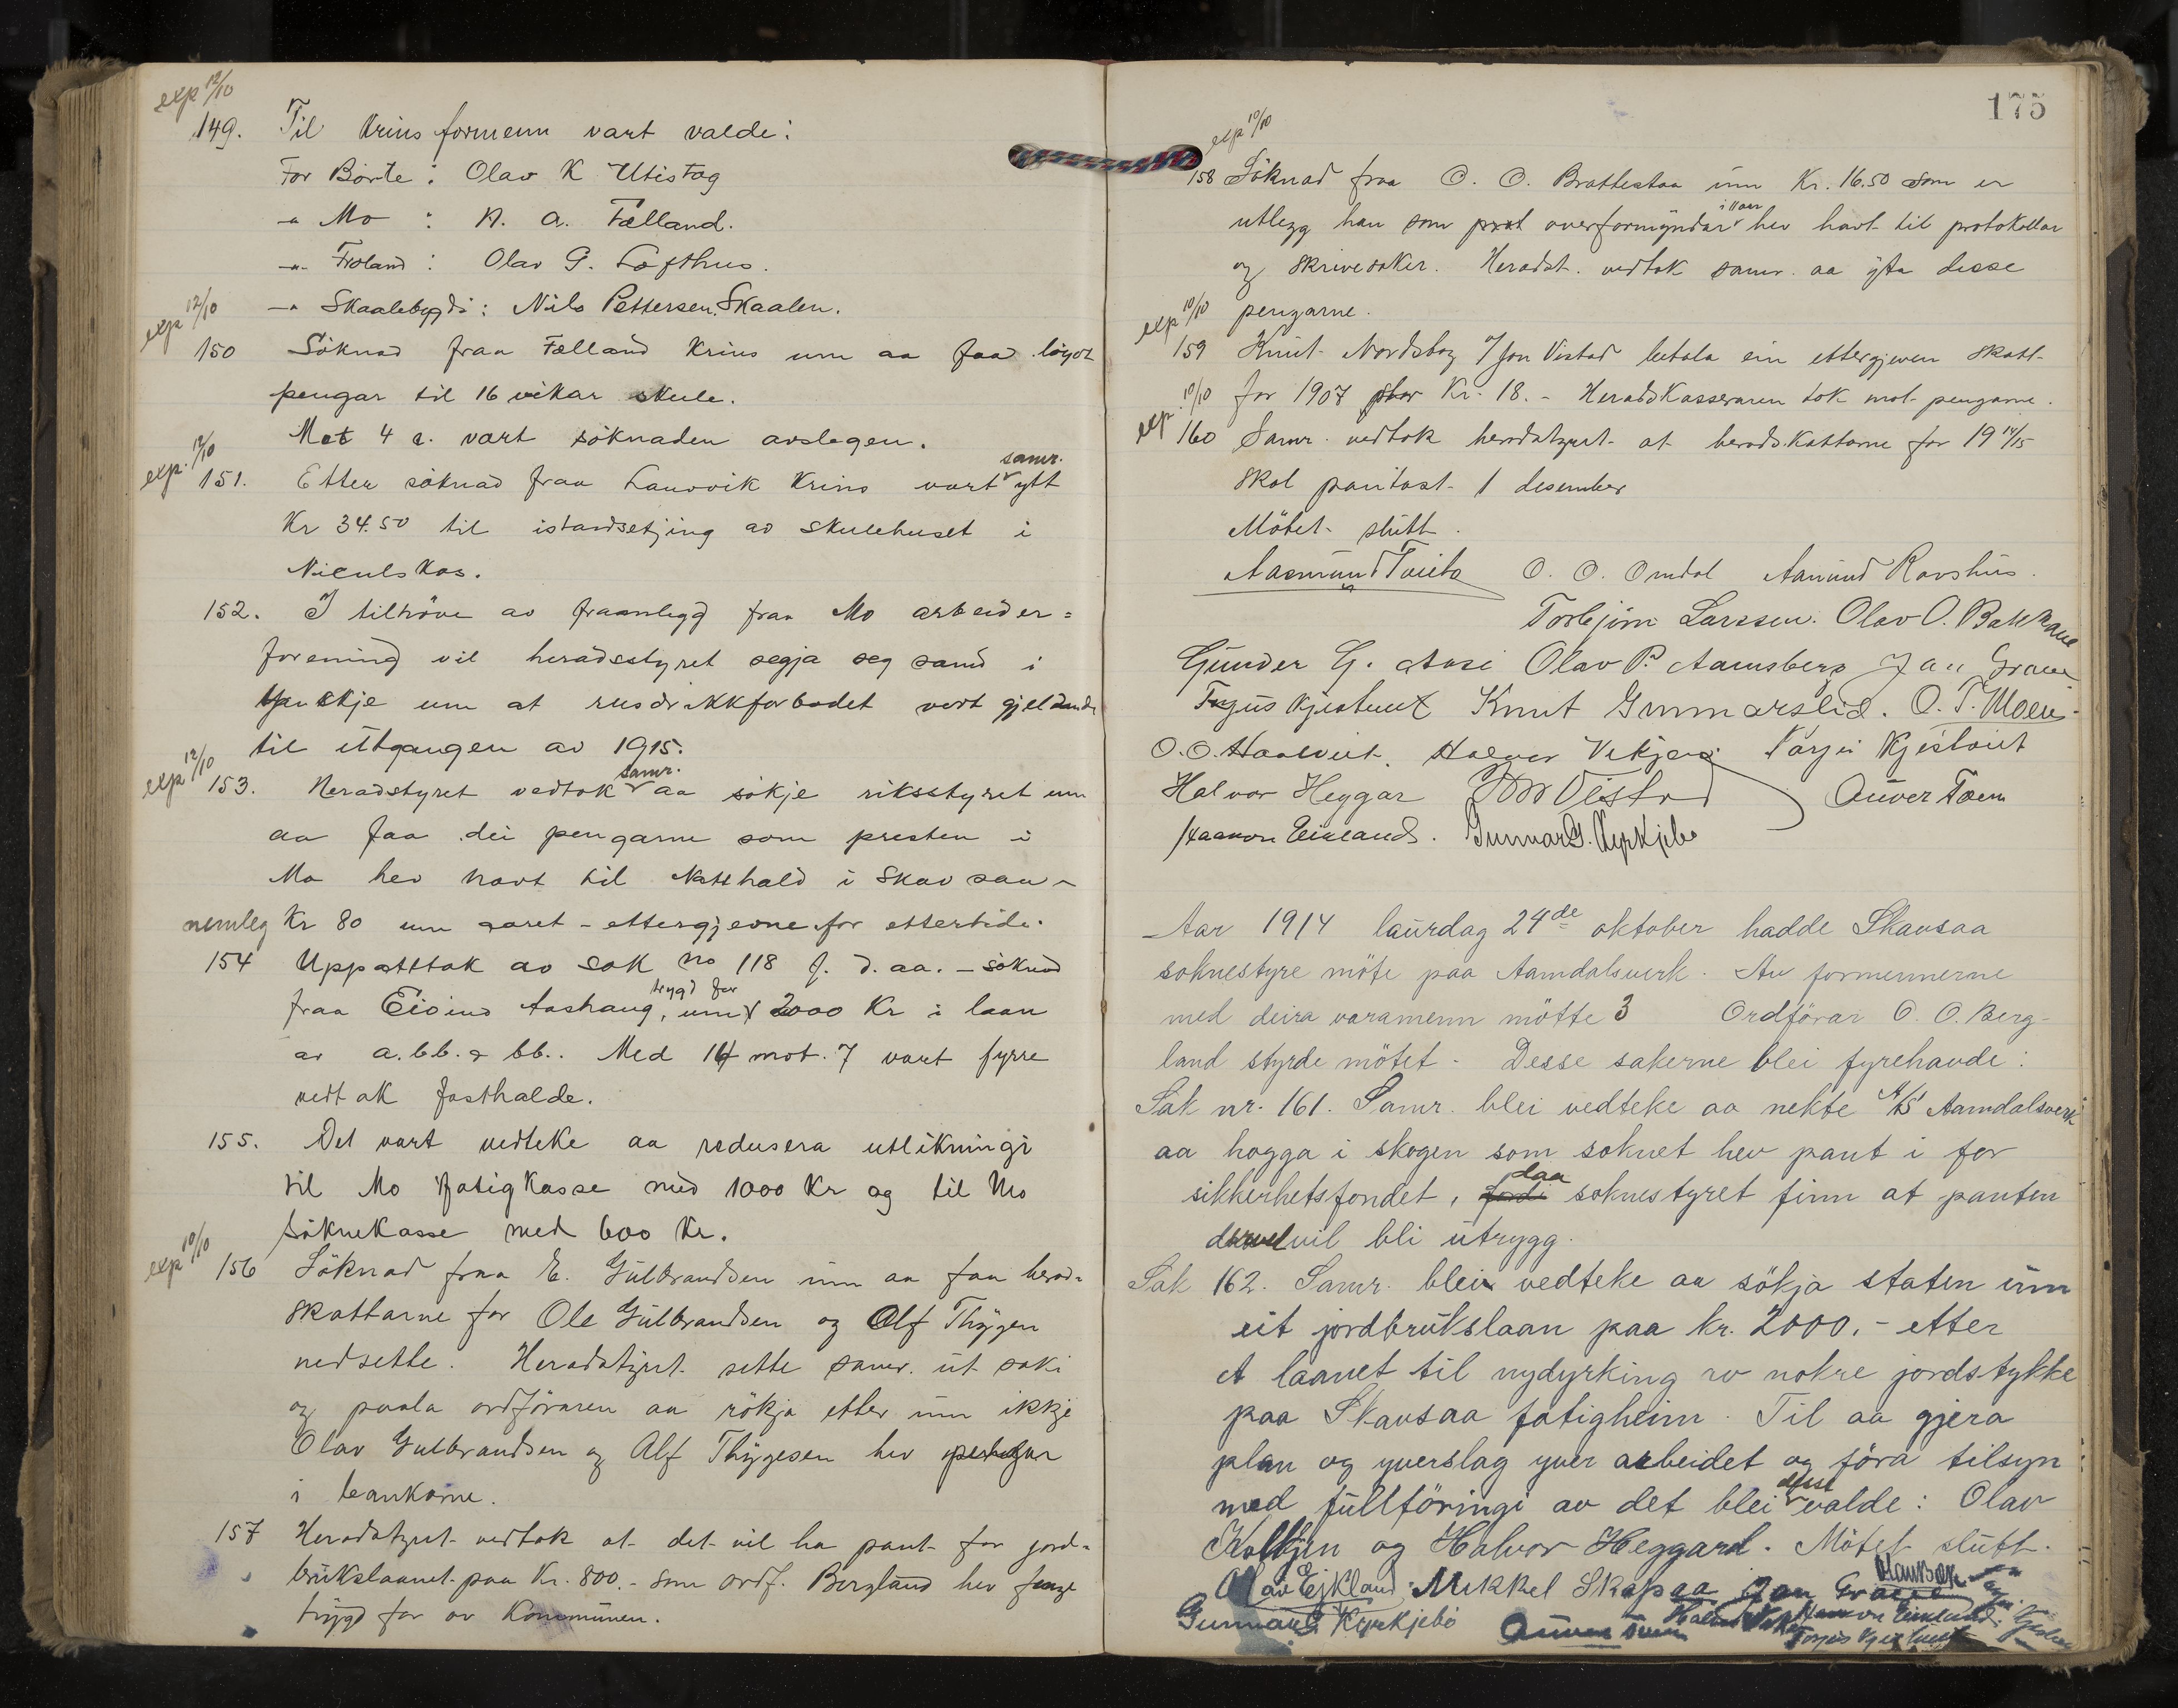 exp 12/10
149. Til Krinsformenn vart valde:
For Börte: Olav K Utistog
-"- Mo : A. A. Fælland.
-"- Froland: Olav G. Lofthus.
-"- Skaalebygdi: Nils Pettersen Skaalen.
exp 12/10
150 Söknad fraa Fælland Krins um aa faa löyst
pengar til 16 vikar skule.
Mot 4 r. vart söknaden avslegen.
exp. 12/10
151. Etter söknad fraa Lauvvik Krins vart samr. ytt
Kr 34.50 til istandsetjing av skulehuset i
Niculskas.
152. I tilhöve av framlegg fraa Mo arbeider=
forening vil heradsstyret segja seg samd i
ynskje um at rusdrikkforbodet vert gjeldande
til utgangen av 1915.
exp 12/10
153. Heradstyret vedtok samr. aa sökje riksstyret um
aa faa dei pengarne som presten i
Mo hev havt til Natthald i Skavsaa -
nemleg Kr 80 um aaret - ettergjevne for ettertidi.
154 Uppatttak av sak no 118 f. d. aa. - söknad
fraa Eivind Aashaug, um trygd for 2000 Kr i laan
av a.bb. & bb.. Med 14 mot 7 vart fyrre
vedtak fasthalde.
155. Det vart vedteke aa redusera utlikningi
til Mo fatigkasse med 1000 Kr og til Mo
söknekasse med 600 Kr.
exp 10/10
156 Söknad fraa E. Gulbrandsen um aa faa herad=
skattarne for Ole Gulbrandsen og Alf Thygesen
nedsette. Heradstyret sette samr. ut saki
og paala ordföraren aa rökja etter um ikkje
Olav Gulbrandsen og Alf Thygesen hev pengar
i bankarne.
157 Heradstyret vedtok at det vil ha pant for jord=
brukslaanet paa Kr. 800.- som ordf. Bergland hev fenge
trygd for av Kommunen.
175
exp 10/10
158 Söknad fraa O. O. Brattestaa um Kr. 16.50 som er
utlegg han som overformyndar hev havt til protokollar
og skrivesaker. Heradst. vedtok samr. aa yta desse
pengarne.
exp 10/10
159 Knut Nordsbog v/ Jon Vistad betala ein ettergjeven skatt
for 1907 stor Kr. 18.- Heradskasseraren tok mot pengarne.
exp. 10/10
160 Samr. vedtok heradstyret at heradskattarne for 1914/15
skal pantast 1 desember
Mötet slutt.
Aasmund Tveito O. O. Omdal Aanund Ravshus.
Torbjörn Larssen. Olav O. Bakkane
Gunder G. Aasi Olav P. Aamsberg Jan Graver
Targus Kjestveit Knut Gunnarslid. O. T. Moen.
O. O. Haatveit. Halvor Vekjer. Targei Kjestveit
Halvor Heggar Jon Vistad Auver Toen
Haavor Eikland. Gunnar G. Kyrkjebö
Aar 1914 laurdag 24de oktober hadde Skavsaa
soknestyre möte paa Aamdalsverk. Av formennerne
med deira varamenn mötte 3 Ordförar O. O. Berg-
land styrde mötet - Desse sakerne blei fyrehavde:
Sak nr. 161. Samr. blei vedteke aa nekte A/S Aamdalsverk
aa hogga i skogen som soknet hev pant i for
sikkerhetsfondet, daa soknestyret finn at panten
dervel vil bli utrygg.
Sak 162. Samr. blei vedteke aa sökja staten um
eit jordbrukslaan paa kr. 2000.- etter
et laanet til nydyrking av nokre jordstykke
paa Skavsaa fatigheim. Til aa gjera
plan og yverslag yver arbeidet og föra tilsyn
med fullföringi av det blei desse valde: Olav
Kolltjen og Halvor Heggard. Mötet slutt.
Olav Ejkland Mikkel Skapsaa Jan Graver
Gunnar G. Kyrkjebö Auver Toen
Targus Kjestveit